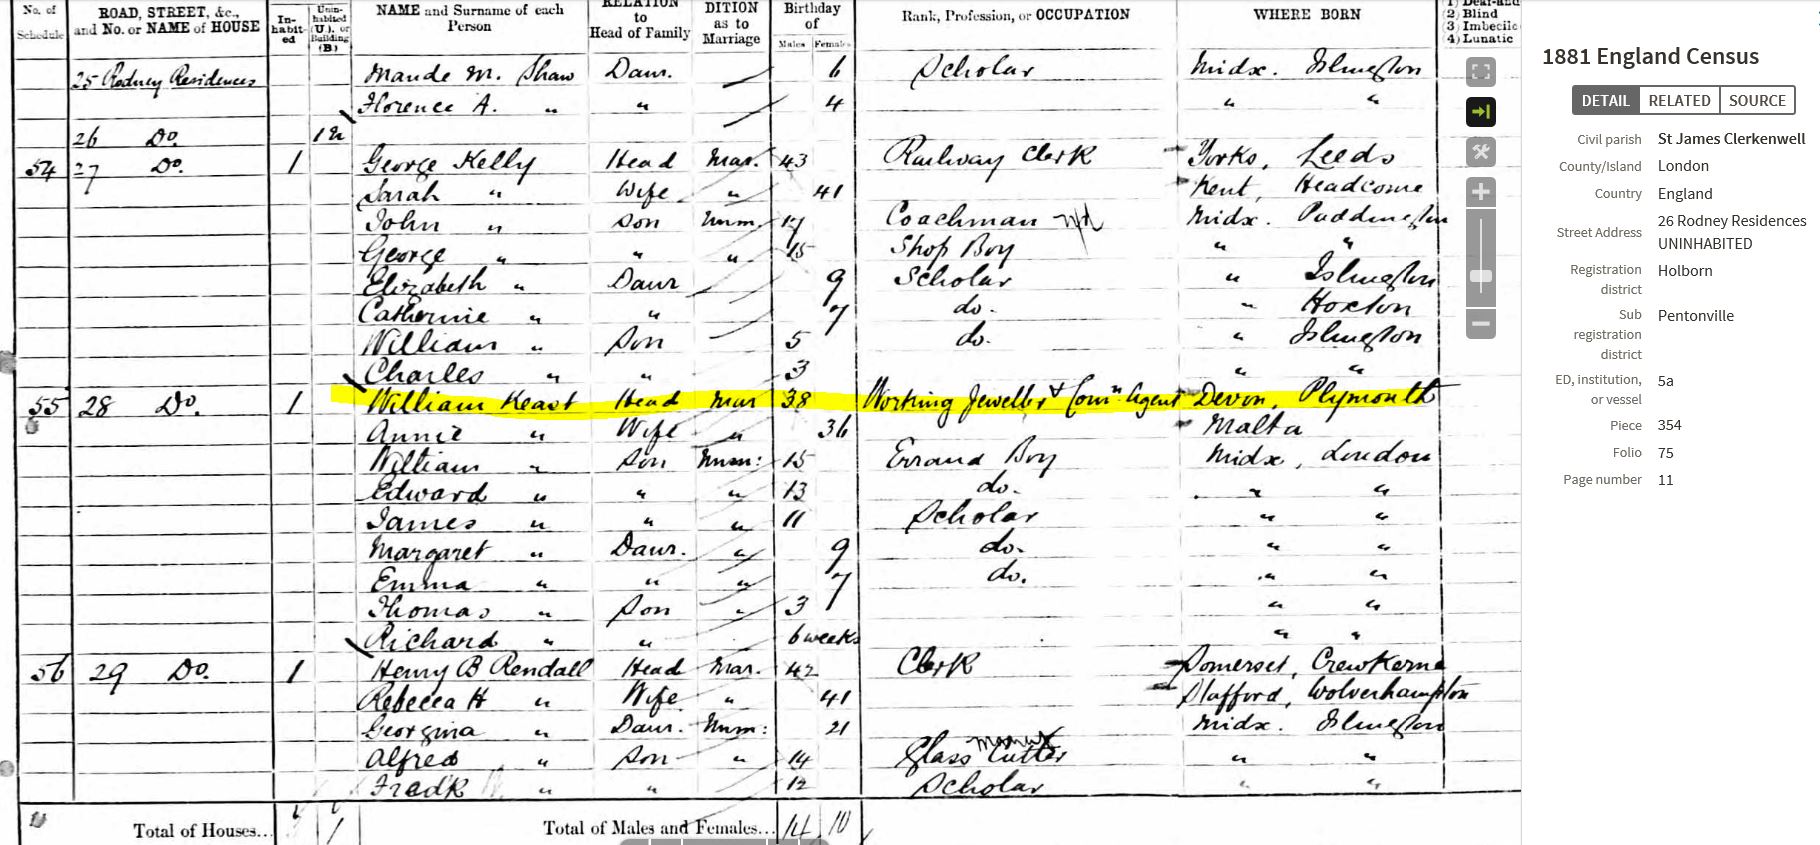 No. of Schedule ROAD, STREET, &c., and No. or NAME of HOUSE In-habit-ed Unin-habited (U.), or Building (B.) NAME and Surname of each Person RELATION to Head of Family CON-DITION as to Marriage Birthday of Males Females Rank, Profession, or OCCUPATION WHERE BORN (1) Deaf-and (2) Blind (3) Imbecile (4) Lunatic
25 Rodney Residences Maude M. Shaw Daur. 6 Scholar Midx. Islington
Florence A. " " 4 " "
26 Do.
54 27 Do. 1 George Kelly Head Mar. 43 Railway Clerk Yorks, Leeds
Sarah " Wife " 41 Kent, Headcorne
John " Son Unm. 17 Coachman Midx. Paddington
George " " " 15 Shop Boy " "
Elizabeth " Daur 9 Scholar " Islington
Catherine " " 7 do. " Hoxton
William " Son 5 do. " Islington
Charles " " 3 " "
55 28 Do. 1 William Keast Head Mar 38 Working Jeweller & Comn. Agent Devon, Plymouth
Annie " Wife " 36 Malta
William " Son Unm: 15 Errand Boy Midx, London
Edward " " " 13 do. " "
James " " " 11 Scholar " "
Margaret " Daur. " 9 do. " "
Emma " " " 7 do. " "
Thomas " Son " 3 " "
Richard " " 6 weeks " "
56 29 Do. 1 Henry B Rendall Head Mar. 42 Clerk Somerset, Crewkerne
Rebecca H " Wife " 41 Stafford, Wolverhampton
Georgina " Daur. Unm: 21 Midx. Islington
Alfred " Son " 14 Glass Cutter " "
Fredk " " 12 Scholar " "
Total of Houses... 1 Total of Males and Females... 14 10
1881 England Census
DETAIL RELATED SOURCE
Civil parish St James Clerkenwell
County/Island London
Country England
Street Address 26 Rodney Residences UNINHABITED
Registration district Holborn
Sub registration district Pentonville
ED, institution, or vessel 5a
Piece 354
Folio 75
Page number 11